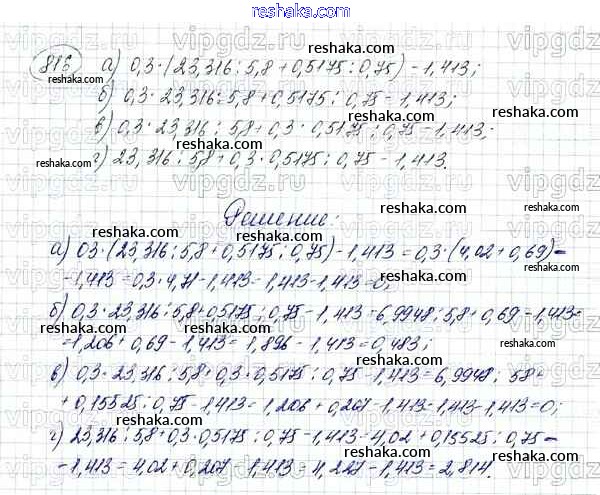 reshaka.com
816 а) 0,3·(23,316:5,8+0,5175:0,75)-1,413;
б) 0,3·23,316:5,8+0,5175:0,75-1,413;
в) 0,3·23,316:5,8+0,3·0,5175:0,75-1,413;
г) 23,316:5,8+0,3·0,5175:0,75-1,413.
Решение:
а) 0,3·(23,316:5,8+0,5175:0,75)-1,413=0,3·(4,02+0,69)-
-1,413=0,3·4,71-1,413=1,413-1,413=0;
б) 0,3·23,316:5,8+0,5175:0,75-1,413=6,9948:5,8+0,69-1,413=
=1,206+0,69-1,413=1,896-1,413=0,483;
в) 0,3·23,316:5,8+0,3·0,5175:0,75-1,413=6,9948:5,8+
+0,15525:0,75-1,413=1,206+0,207-1,413=1,413-1,413=0;
г) 23,316:5,8+0,3·0,5175:0,75-1,413=4,02+0,15525:0,75-
-1,413=4,02+0,207-1,413=4,227-1,413=2,814.